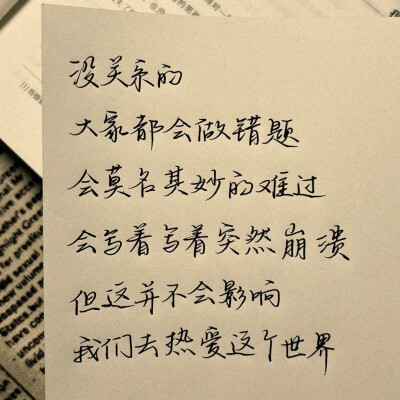 没关系的
大家都会做错题
会莫名其妙的难过
会写着写着突然崩溃
但这并不会影响
我们去热爱这个世界